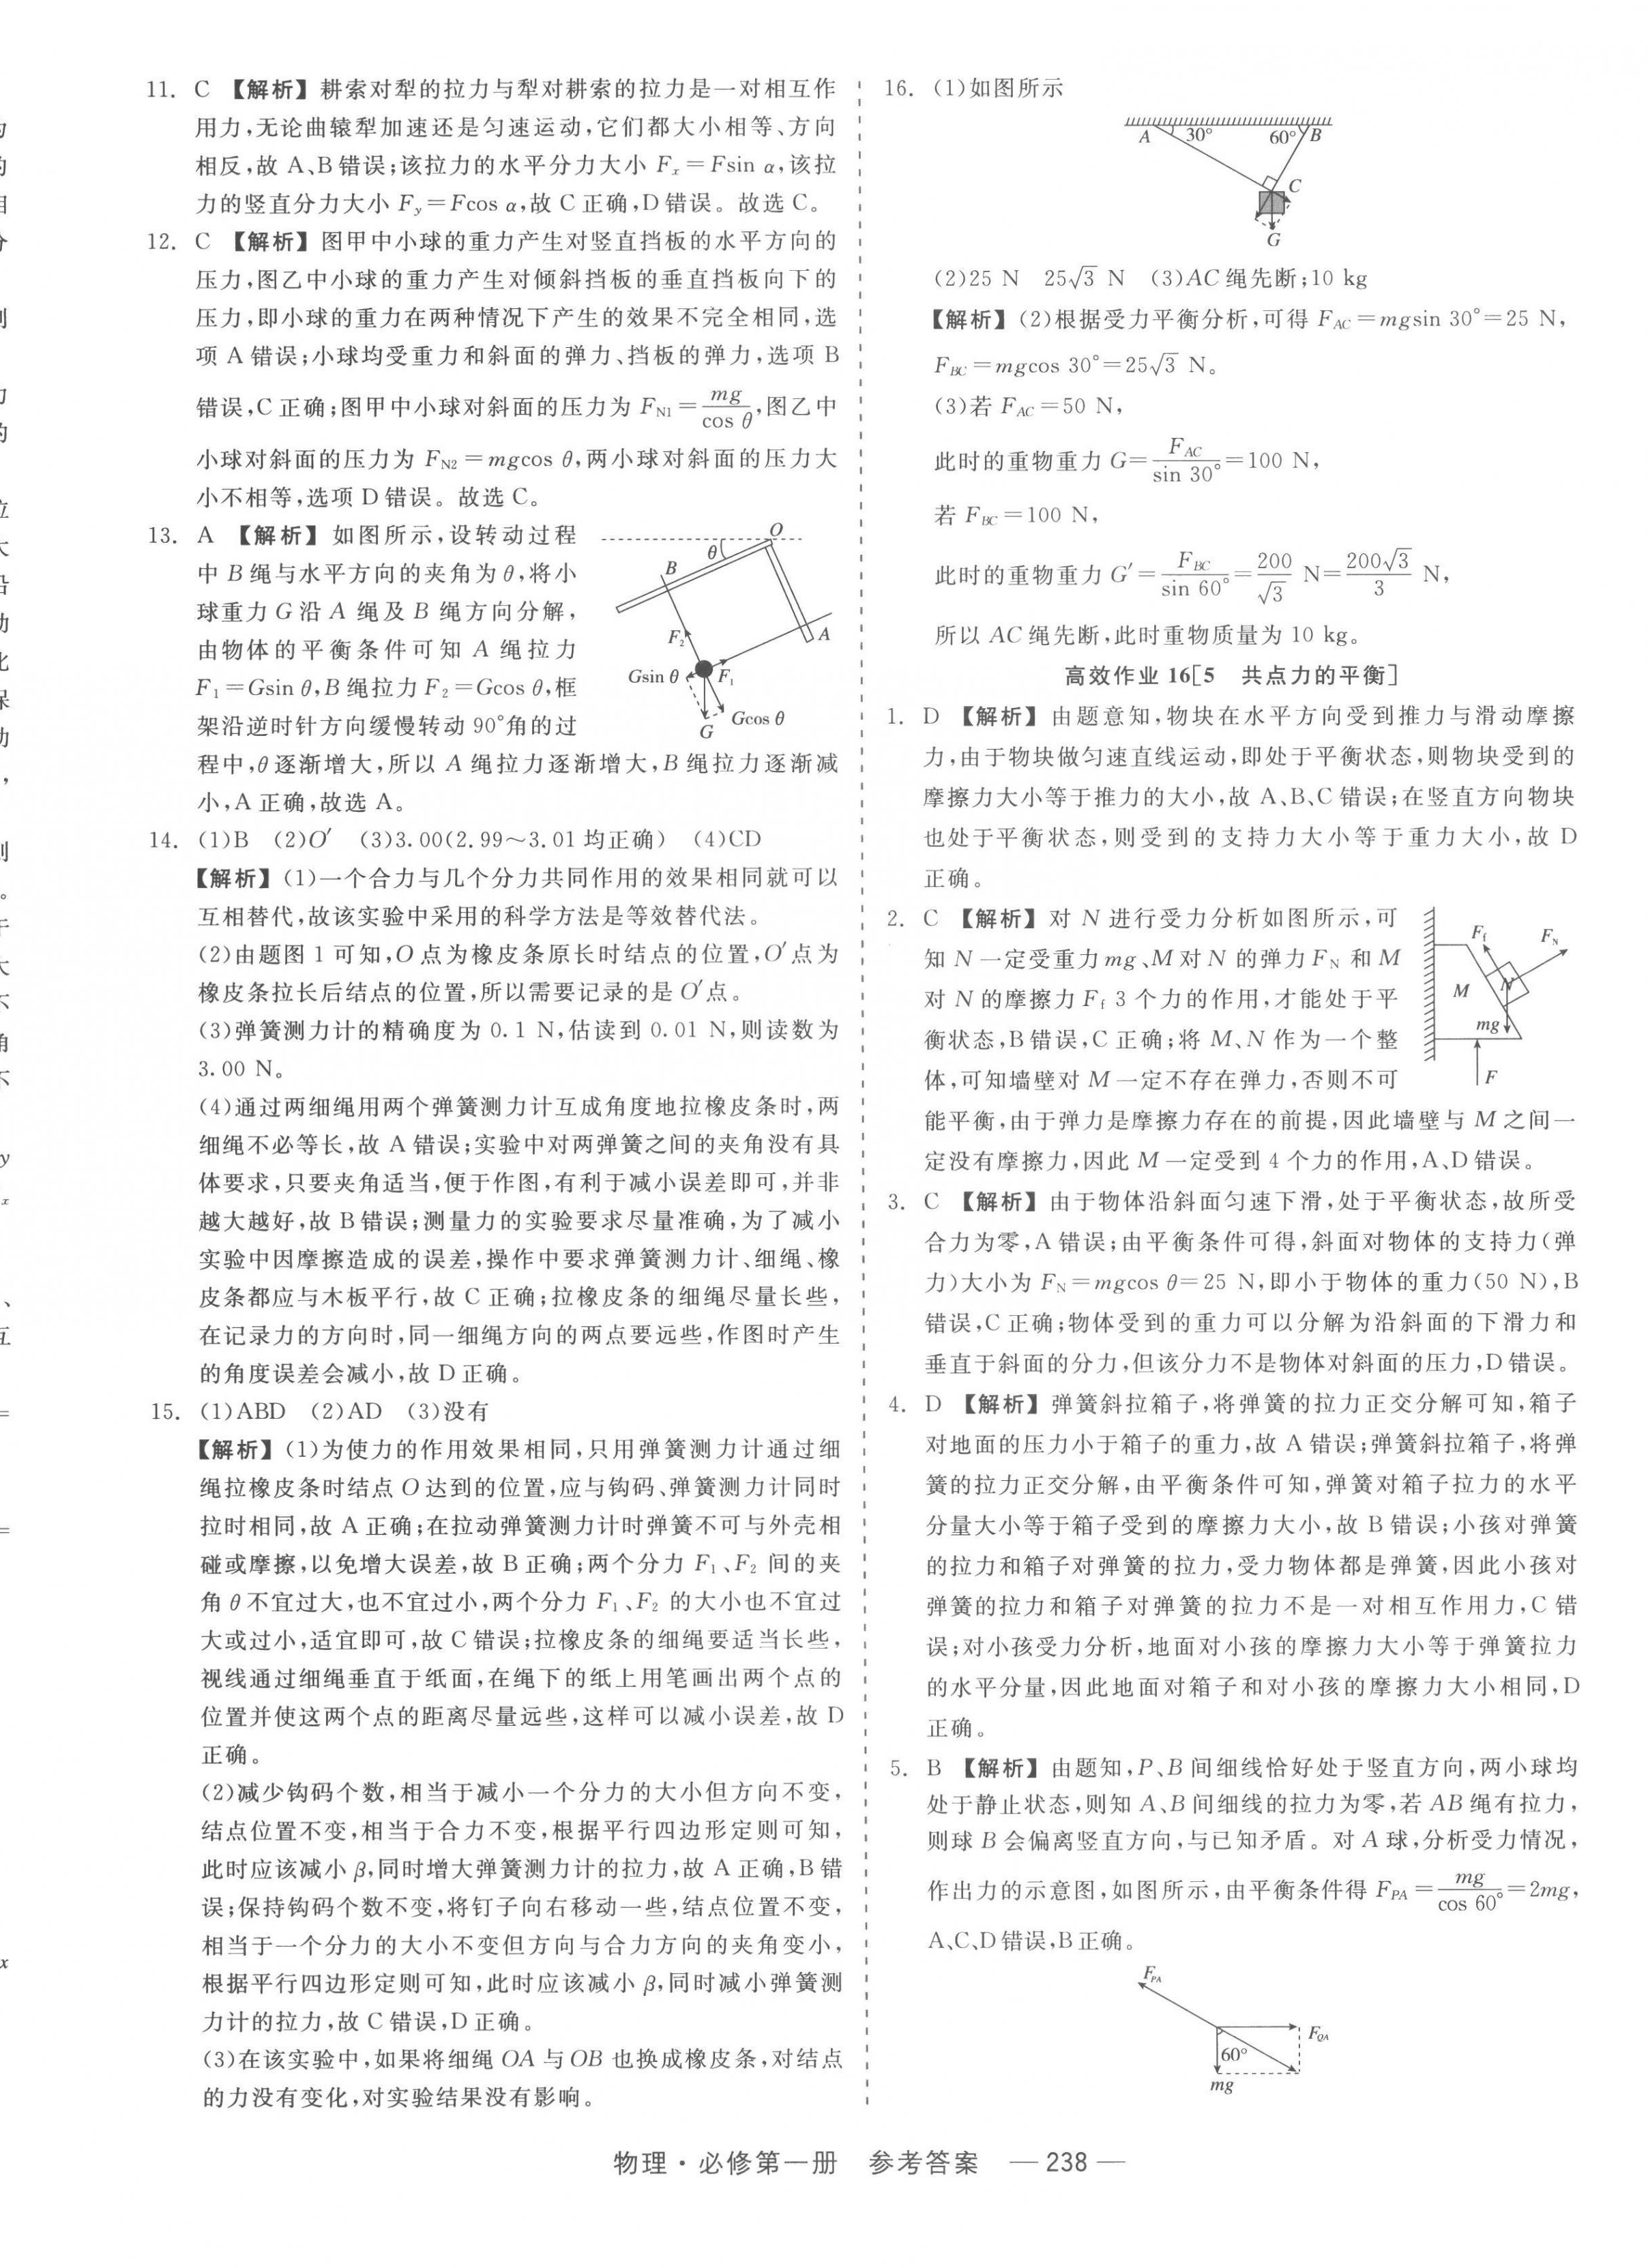 11. C 【解析】耕索对犁的拉力与犁对耕索的拉力是一对相互作
用力,无论曲辕犁加速还是匀速运动,它们都大小相等、方向
相反,故 A、B 错误;该拉力的水平分力大小 Fₓ=Fsin α,该拉
力的竖直分力大小 F_y=Fcos α,故 C 正确,D 错误。故选 C。
12. C 【解析】图甲中小球的重力产生对竖直挡板的水平方向的
压力,图乙中小球的重力产生对倾斜挡板的垂直挡板向下的
压力,即小球的重力在两种情况下产生的效果不完全相同,选
项 A 错误;小球均受重力和斜面的弹力、挡板的弹力,选项 B
错误,C 正确;图甲中小球对斜面的压力为 F_N1=mg/cos θ,图乙中
小球对斜面的压力为 F_N2=mgcos θ,两小球对斜面的压力大
小不相等,选项 D 错误。故选 C。
13. A 【解析】如图所示,设转动过程
中 B 绳与水平方向的夹角为 θ,将小
球重力 G 沿 A 绳及 B 绳方向分解,
由物体的平衡条件可知 A 绳拉力
F₁=Gsin θ,B 绳拉力 F₂=Gcos θ,框
架沿逆时针方向缓慢转动 90°角的过
程中,θ 逐渐增大,所以 A 绳拉力逐渐增大,B 绳拉力逐渐减
小,A 正确,故选 A。
O
θ
B
A
F₂
F₁
Gsin θ
Gcos θ
G
14. (1)B (2)O′ (3)3.00(2.99～3.01 均正确) (4)CD
【解析】(1)一个合力与几个分力共同作用的效果相同就可以
互相替代,故该实验中采用的科学方法是等效替代法。
(2)由题图 1 可知,O 点为橡皮条原长时结点的位置,O′点为
橡皮条拉长后结点的位置,所以需要记录的是 O′点。
(3)弹簧测力计的精确度为 0.1 N,估读到 0.01 N,则读数为
3.00 N。
(4)通过两细绳用两个弹簧测力计互成角度地拉橡皮条时,两
细绳不必等长,故 A 错误;实验中对两弹簧之间的夹角没有具
体要求,只要夹角适当,便于作图,有利于减小误差即可,并非
越大越好,故 B 错误;测量力的实验要求尽量准确,为了减小
实验中因摩擦造成的误差,操作中要求弹簧测力计、细绳、橡
皮条都应与木板平行,故 C 正确;拉橡皮条的细绳尽量长些,
在记录力的方向时,同一细绳方向的两点要远些,作图时产生
的角度误差会减小,故 D 正确。
15. (1)ABD (2)AD (3)没有
【解析】(1)为使力的作用效果相同,只用弹簧测力计通过细
绳拉橡皮条时结点 O 达到的位置,应与钩码、弹簧测力计同时
拉时相同,故 A 正确;在拉动弹簧测力计时弹簧不可与外壳相
碰或摩擦,以免增大误差,故 B 正确;两个分力 F₁、F₂ 间的夹
角 θ 不宜过大,也不宜过小,两个分力 F₁、F₂ 的大小也不宜过
大或过小,适宜即可,故 C 错误;拉橡皮条的细绳要适当长些,
视线通过细绳垂直于纸面,在绳下的纸上用笔画出两个点的
位置并使这两个点的距离尽量远些,这样可以减小误差,故 D
正确。
(2)减少钩码个数,相当于减小一个分力的大小但方向不变,
结点位置不变,相当于合力不变,根据平行四边形定则可知,
此时应该减小 β,同时增大弹簧测力计的拉力,故 A 正确,B 错
误;保持钩码个数不变,将钉子向右移动一些,结点位置不变,
相当于一个分力的大小不变但方向与合力方向的夹角变小,
根据平行四边形定则可知,此时应该减小 β,同时减小弹簧测
力计的拉力,故 C 错误,D 正确。
(3)在该实验中,如果将细绳 OA 与 OB 也换成橡皮条,对结点
的力没有变化,对实验结果没有影响。
16. (1)如图所示
A 30° 60° B
C
G
(2)25 N 25√3 N (3)AC 绳先断;10 kg
【解析】(2)根据受力平衡分析,可得 F_AC=mgsin 30°=25 N,
F_BC=mgcos 30°=25√3 N。
(3)若 F_AC=50 N,
此时的重物重力 G=F_AC/sin 30°=100 N,
若 F_BC=100 N,
此时的重物重力 G′=F_BC/sin 60°=200/√3 N=200√3/3 N,
所以 AC 绳先断,此时重物质量为 10 kg。
高效作业 16[5 共点力的平衡]
1. D 【解析】由题意知,物块在水平方向受到推力与滑动摩擦
力,由于物块做匀速直线运动,即处于平衡状态,则物块受到的
摩擦力大小等于推力的大小,故 A、B、C 错误;在竖直方向物块
也处于平衡状态,则受到的支持力大小等于重力大小,故 D
正确。
2. C 【解析】对 N 进行受力分析如图所示,可
知 N 一定受重力 mg、M 对 N 的弹力 F_N 和 M
对 N 的摩擦力 F_f 3 个力的作用,才能处于平
衡状态,B 错误,C 正确;将 M、N 作为一个整
体,可知墙壁对 M 一定不存在弹力,否则不可
能平衡,由于弹力是摩擦力存在的前提,因此墙壁与 M 之间一
定没有摩擦力,因此 M 一定受到 4 个力的作用,A、D 错误。
F_f
F_N
N
M
mg
F
3. C 【解析】由于物体沿斜面匀速下滑,处于平衡状态,故所受
合力为零,A 错误;由平衡条件可得,斜面对物体的支持力(弹
力)大小为 F_N=mgcos θ=25 N,即小于物体的重力(50 N),B
错误,C 正确;物体受到的重力可以分解为沿斜面的下滑力和
垂直于斜面的分力,但该分力不是物体对斜面的压力,D 错误。
4. D 【解析】弹簧斜拉箱子,将弹簧的拉力正交分解可知,箱子
对地面的压力小于箱子的重力,故 A 错误;弹簧斜拉箱子,将弹
簧的拉力正交分解,由平衡条件可知,弹簧对箱子拉力的水平
分量大小等于箱子受到的摩擦力大小,故 B 错误;小孩对弹簧
的拉力和箱子对弹簧的拉力,受力物体都是弹簧,因此小孩对
弹簧的拉力和箱子对弹簧的拉力不是一对相互作用力,C 错
误;对小孩受力分析,地面对小孩的摩擦力大小等于弹簧拉力
的水平分量,因此地面对箱子和对小孩的摩擦力大小相同,D
正确。
5. B 【解析】由题知,P、B 间细线恰好处于竖直方向,两小球均
处于静止状态,则知 A、B 间细线的拉力为零,若 AB 绳有拉力,
则球 B 会偏离竖直方向,与已知矛盾。对 A 球,分析受力情况,
作出力的示意图,如图所示,由平衡条件得 F_PA=mg/cos 60°=2mg,
A、C、D 错误,B 正确。
F_PA
F_QA
60°
mg
物理·必修第一册 参考答案 — 238 —